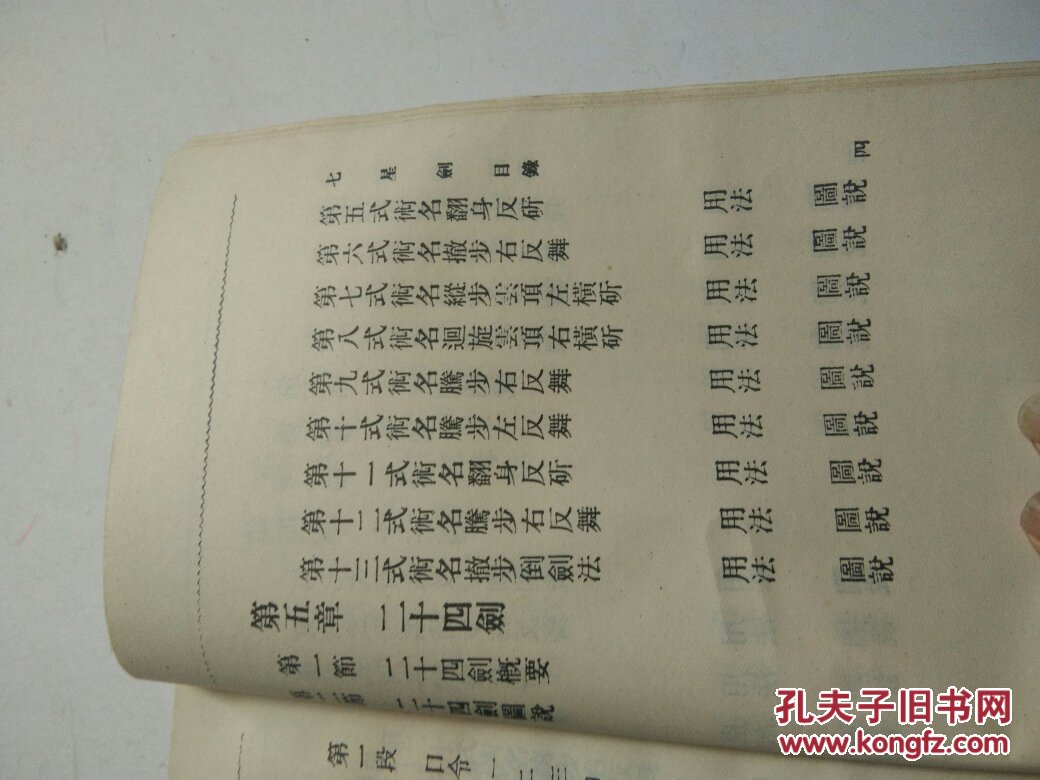 七星劍 目錄 四
第五式術名翻身反斫 用法 圖說
第六式術名撤步右反舞 用法 圖說
第七式術名縱步雲頂左橫斫 用法 圖說
第八式術名迴旋雲頂右橫斫 用法 圖說
第九式術名騰步右反舞 用法 圖說
第十式術名騰步左反舞 用法 圖說
第十一式術名翻身反斫 用法 圖說
第十二式術名騰步右反舞 用法 圖說
第十三式術名撤步倒劍法 用法 圖說
第五章 二十四劍
第一節 二十四劍概要
第二節 二十四劍圖說
第一段 口令一二三
孔夫子旧书网
www.kongfz.com